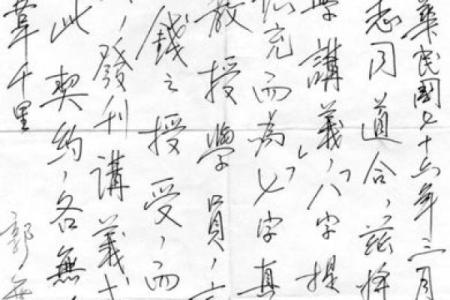 華民國七十六年三月
志同道合，茲將
學講義，「八字提
充而為「七字真
教授學員，
錢之授受，而
，發刊講義
此契約，各無
韋千里
郭